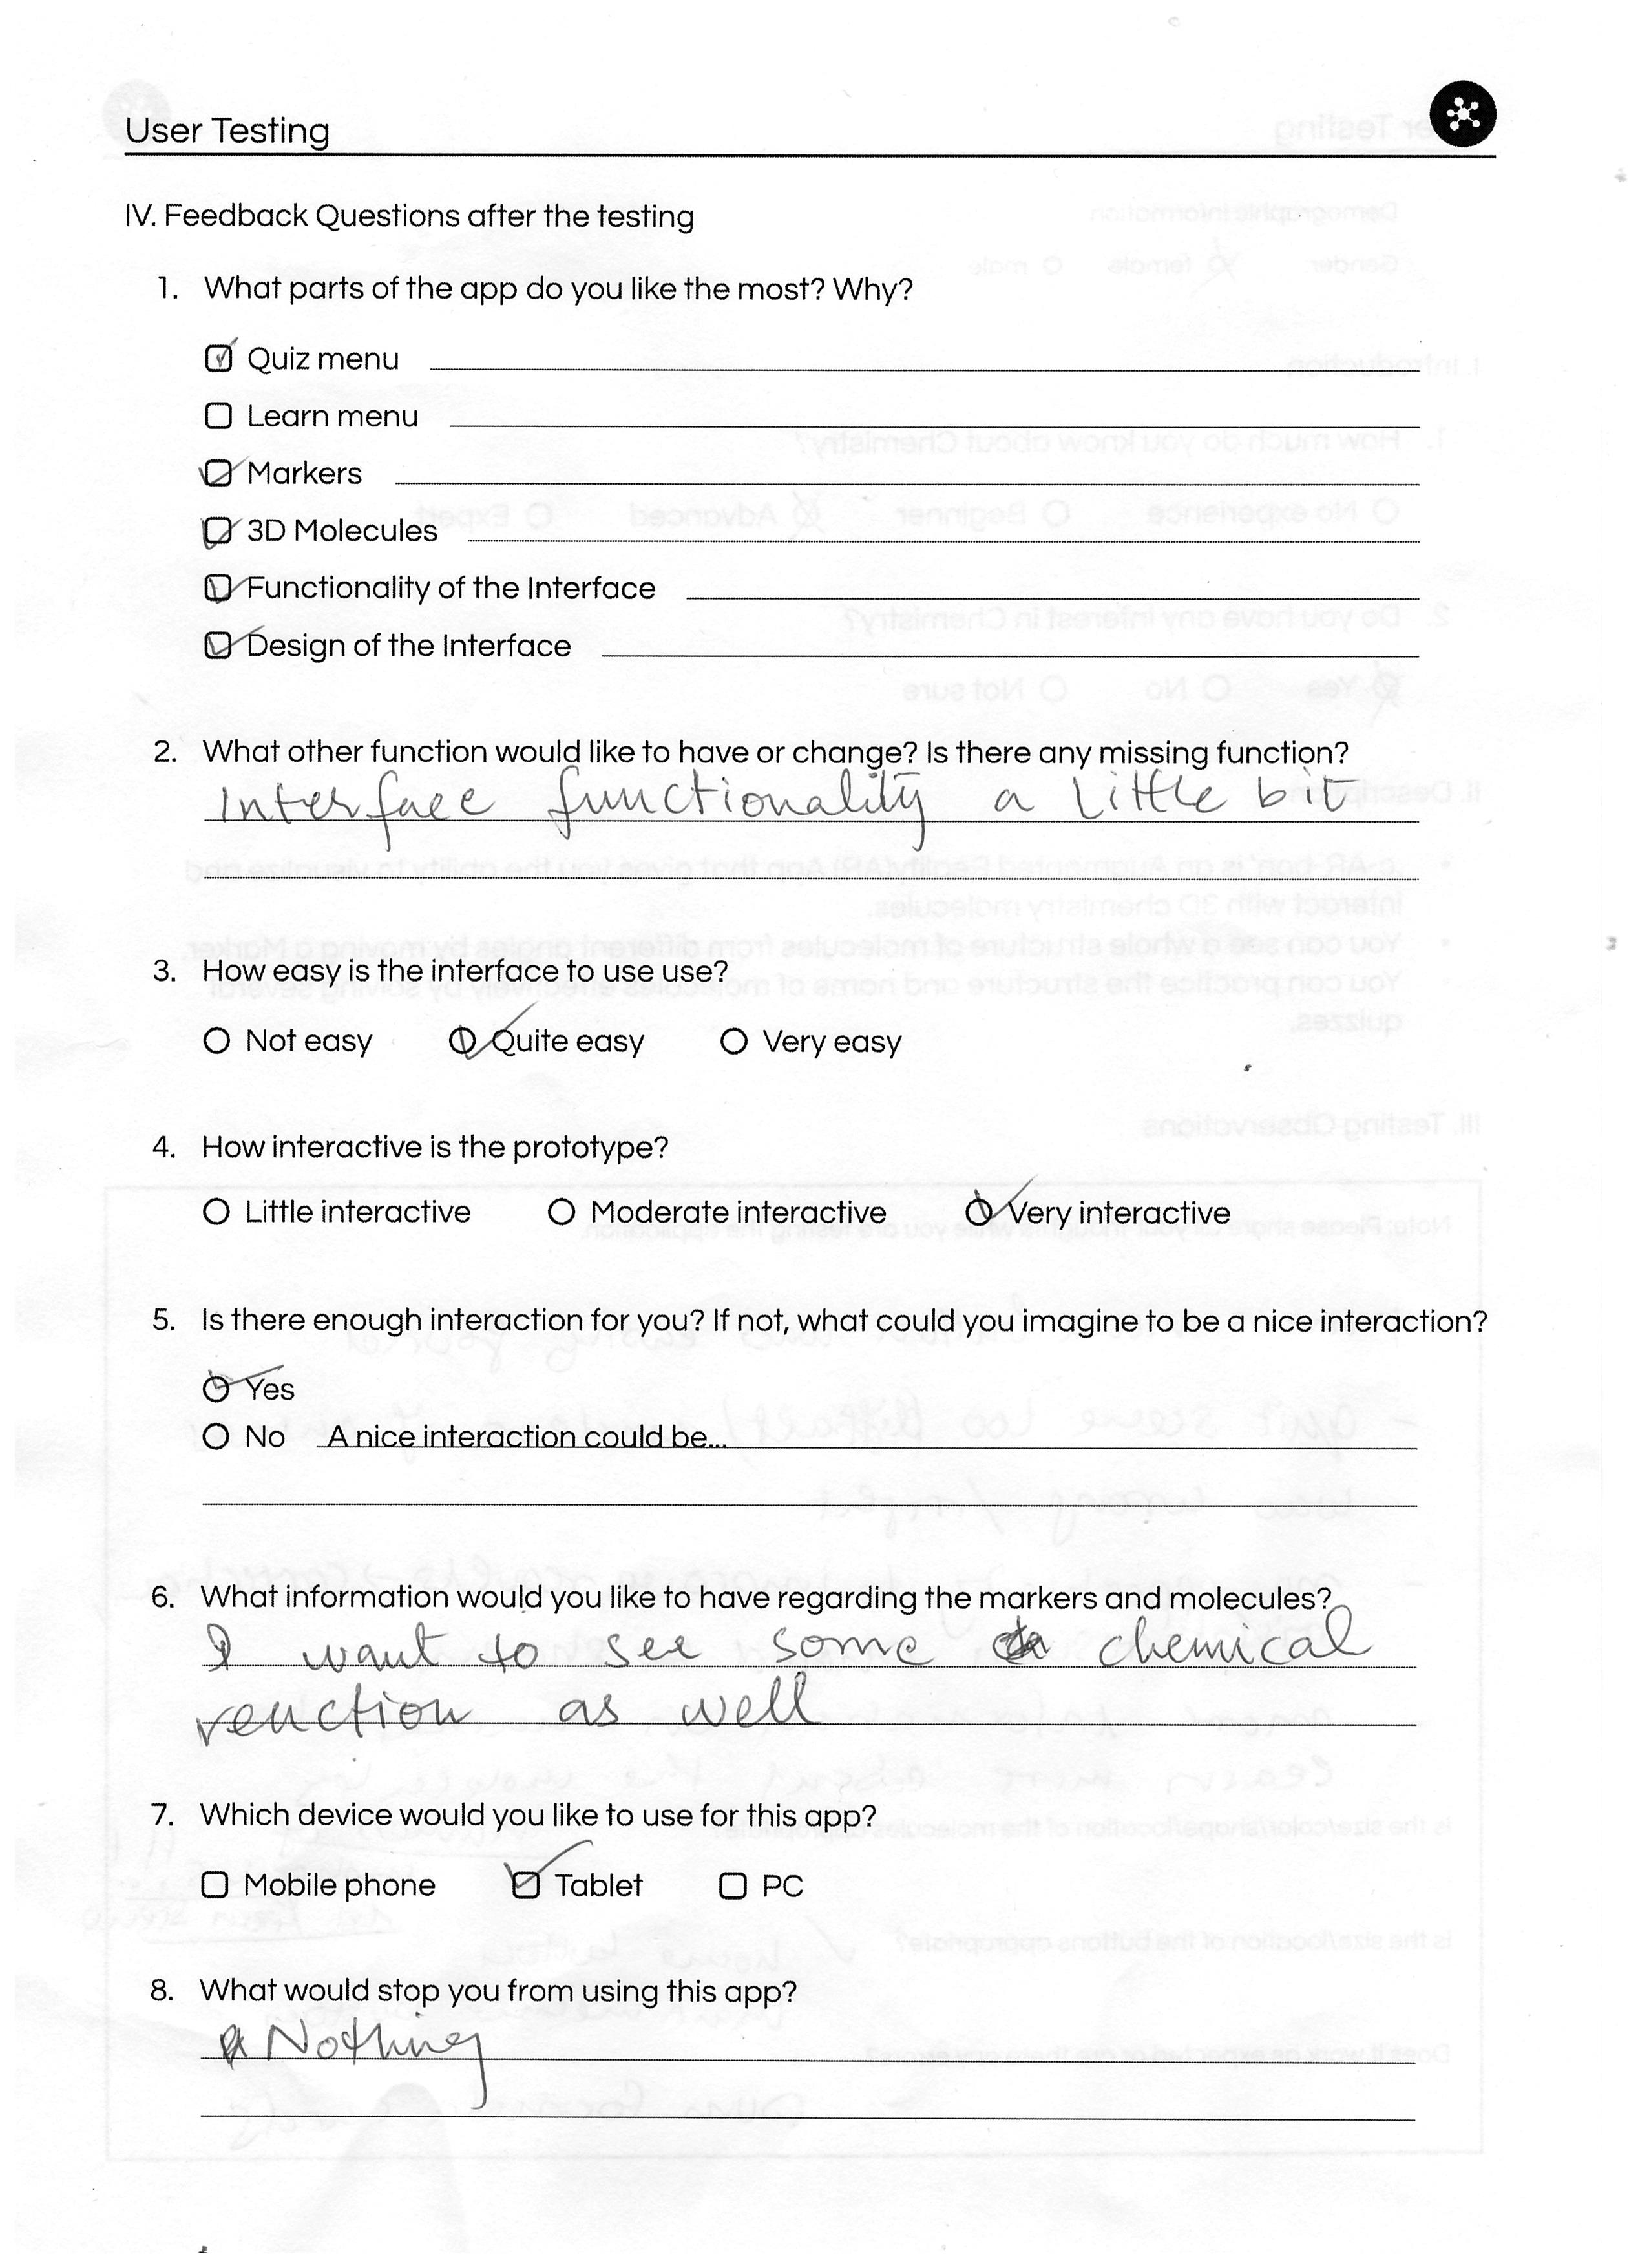 User Testing
IV. Feedback Questions after the testing
1. What parts of the app do you like the most? Why?
Quiz menu
Learn menu
Markers
3D Molecules
Functionality of the Interface
Design of the Interface
2. What other function would like to have or change? Is there any missing function?
Interface functionality a little bit
3. How easy is the interface to use use?
Not easy Quite easy Very easy
4. How interactive is the prototype?
Little interactive Moderate interactive Very interactive
5. Is there enough interaction for you? If not, what could you imagine to be a nice interaction?
Yes
No A nice interaction could be...
6. What information would you like to have regarding the markers and molecules?
I want to see some chemical
reaction as well
7. Which device would you like to use for this app?
Mobile phone Tablet PC
8. What would stop you from using this app?
Nothing